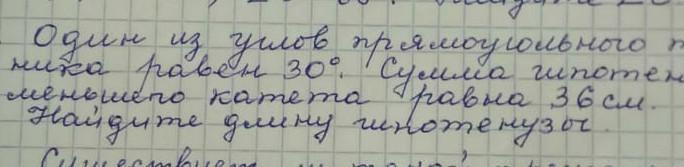 Один из углов прямоугольного
ника равен 30°. Сумма
меньшего катета равна 36 см.
Найдите длину гипотенузы.
Существует